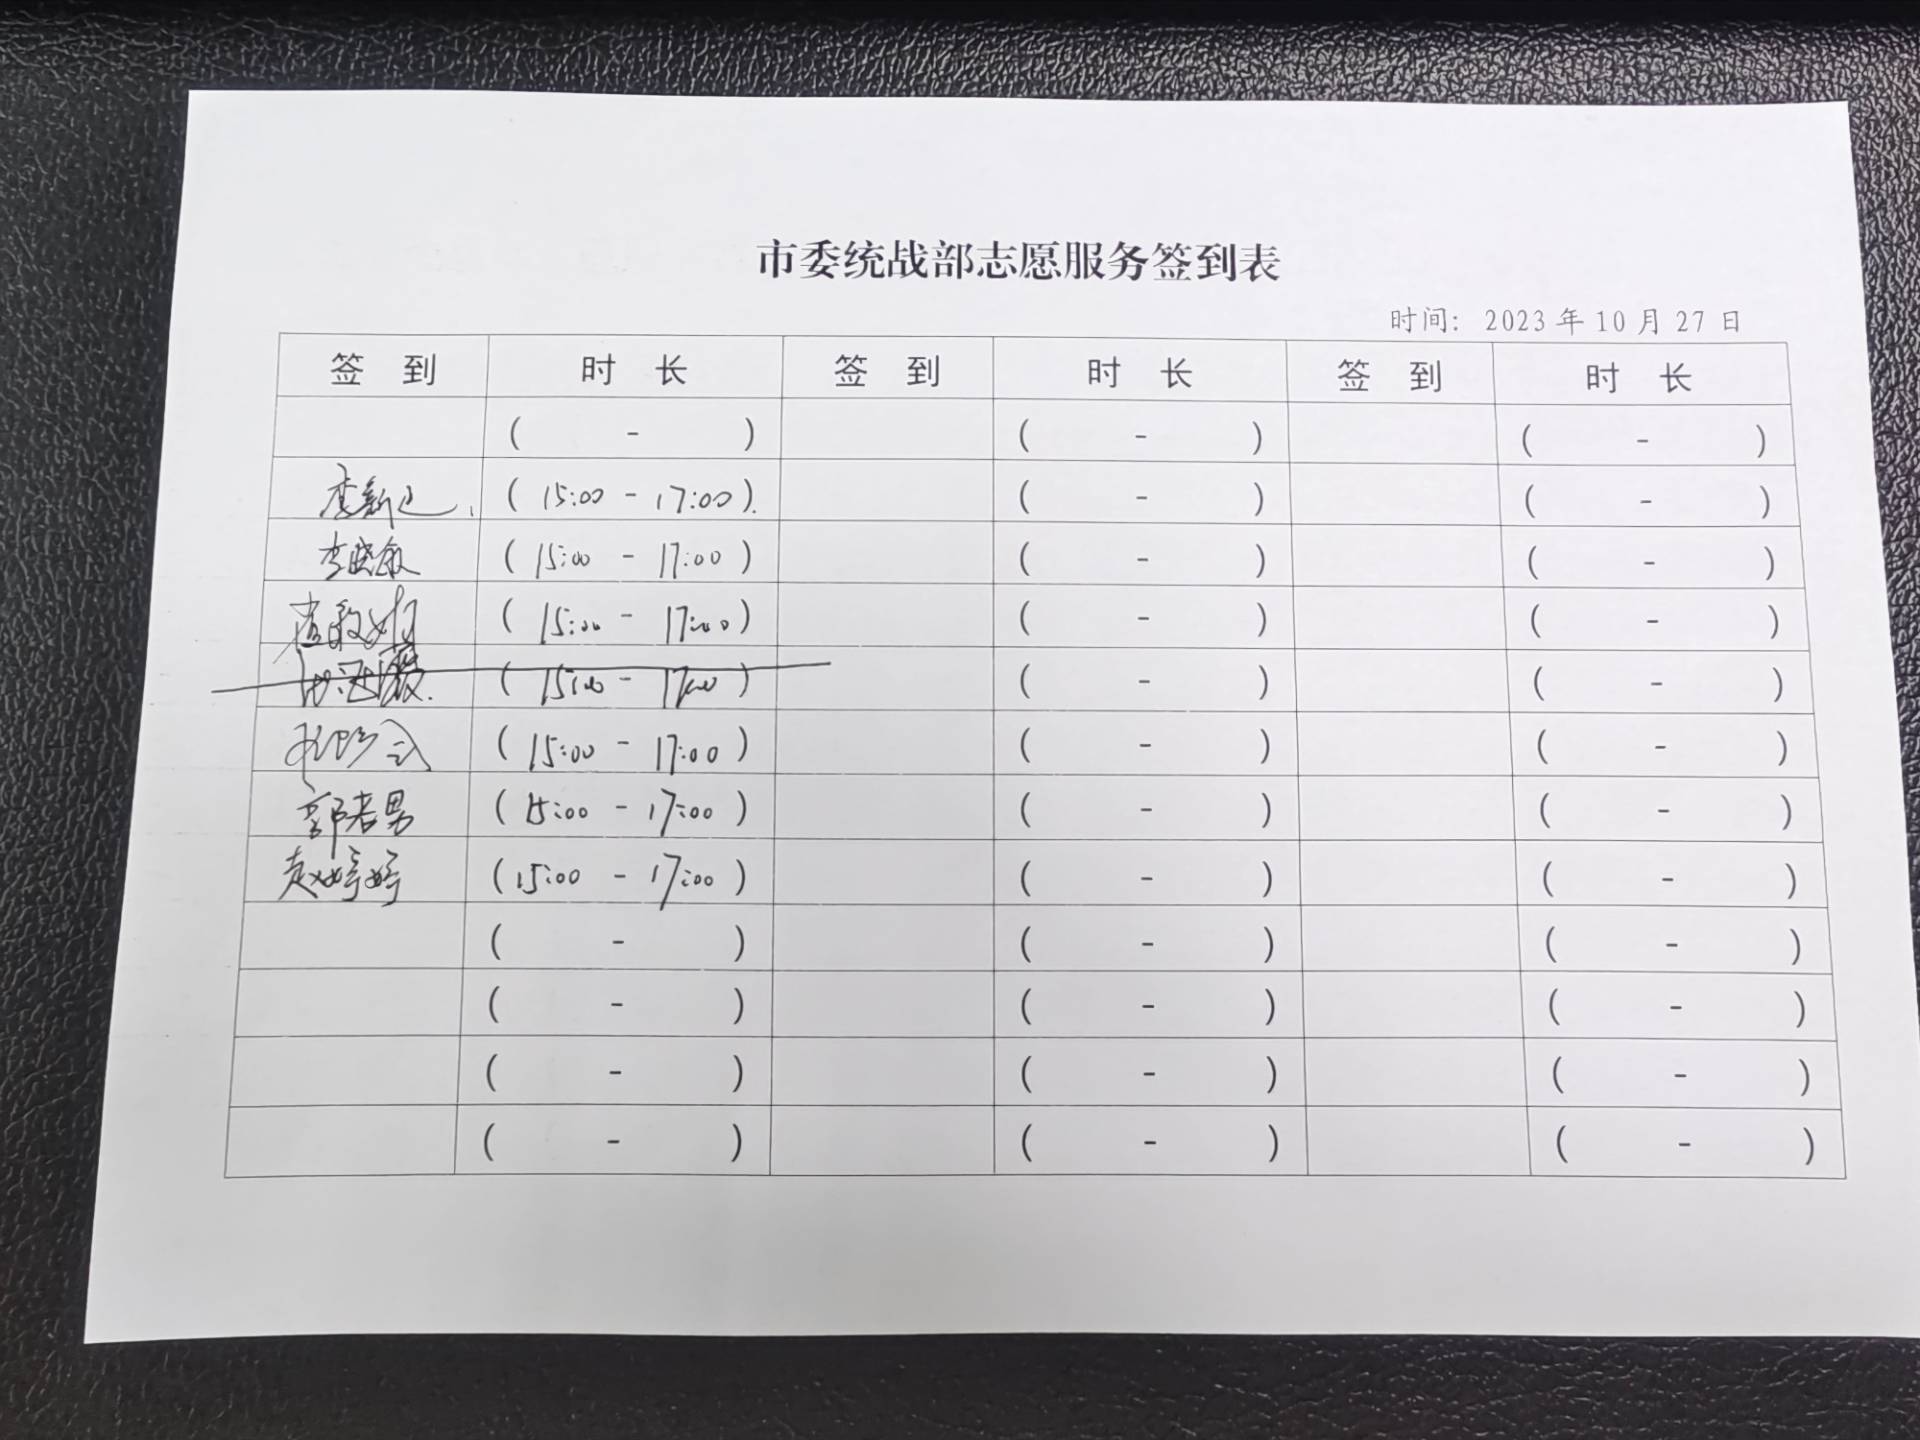 市委统战部志愿服务签到表
时间: 2023年10月27日
签 到 时 长 签 到 时 长 签 到 时 长
( - ) ( - ) ( - )
( 15:00 - 17:00 ). ( - ) ( - )
李晓敏 ( 15:00 - 17:00 ) ( - ) ( - )
( 15:00 - 17:00 ) ( - ) ( - )
( 15:00 - 17:00 ) ( - ) ( - )
( 15:00 - 17:00 ) ( - ) ( - )
郭若男 ( 15:00 - 17:00 ) ( - ) ( - )
赵婷婷 ( 15:00 - 17:00 ) ( - ) ( - )
( - ) ( - ) ( - )
( - ) ( - ) ( - )
( - ) ( - ) ( - )
( - ) ( - ) ( - )